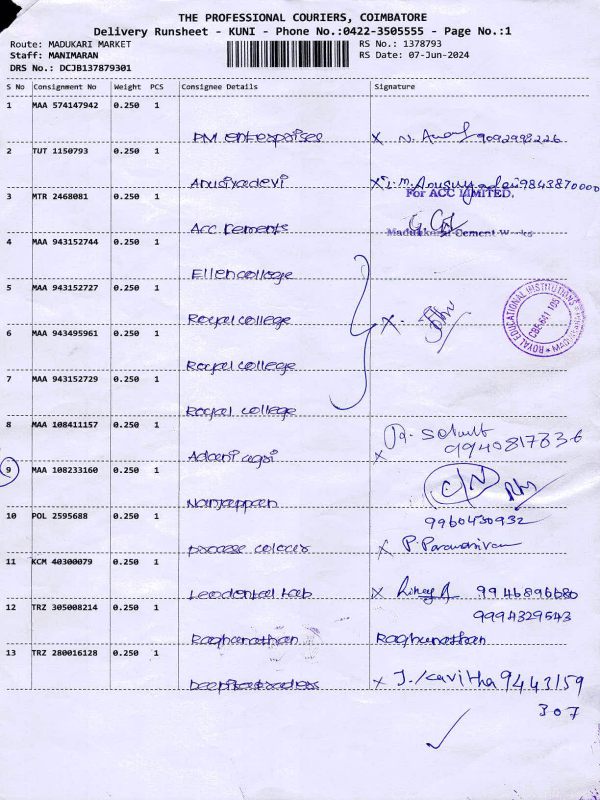 THE PROFESSIONAL COURIERS, COIMBATORE
Delivery Runsheet - KUNI - Phone No.:0422-3505555 - Page No.:1
Route: MADUKARI MARKET RS No.: 1378793
Staff: MANIMARAN RS Date: 07-Jun-2024
DRS No.: DCJB137879301
S No Consignment No Weight PCS Consignee Details Signature
1 MAA 574147942 0.250 1
PM enterprises X N. 9092998226
2 TUT 1150793 0.250 1
Anusiyadevi X L.M. 9843870000
For ACC LIMITED.
3 MTR 2468081 0.250 1
Acc Cements
Madukkarai Cement Works
4 MAA 943152744 0.250 1
Ellen college
5 MAA 943152727 0.250 1
ROYAL EDUCATIONAL INSTITUTIONS
Royal college X.
CBE-641 105
6 MAA 943495961 0.250 1
Royal college
7 MAA 943152729 0.250 1
Royal college
8 MAA 108411157 0.250 1
9940817336
Adani agri X
9 MAA 108233160 0.250 1
Nanjappan
9960430932
10 POL 2595688 0.250 1
X P. Paramasivan
11 KCM 40300079 0.250 1
Leodental Lab X 9946896680
9994329543
12 TRZ 305008214 0.250 1
Raghunathan Raghunathan
13 TRZ 280016128 0.250 1
X J. Kavitha 9443159
307